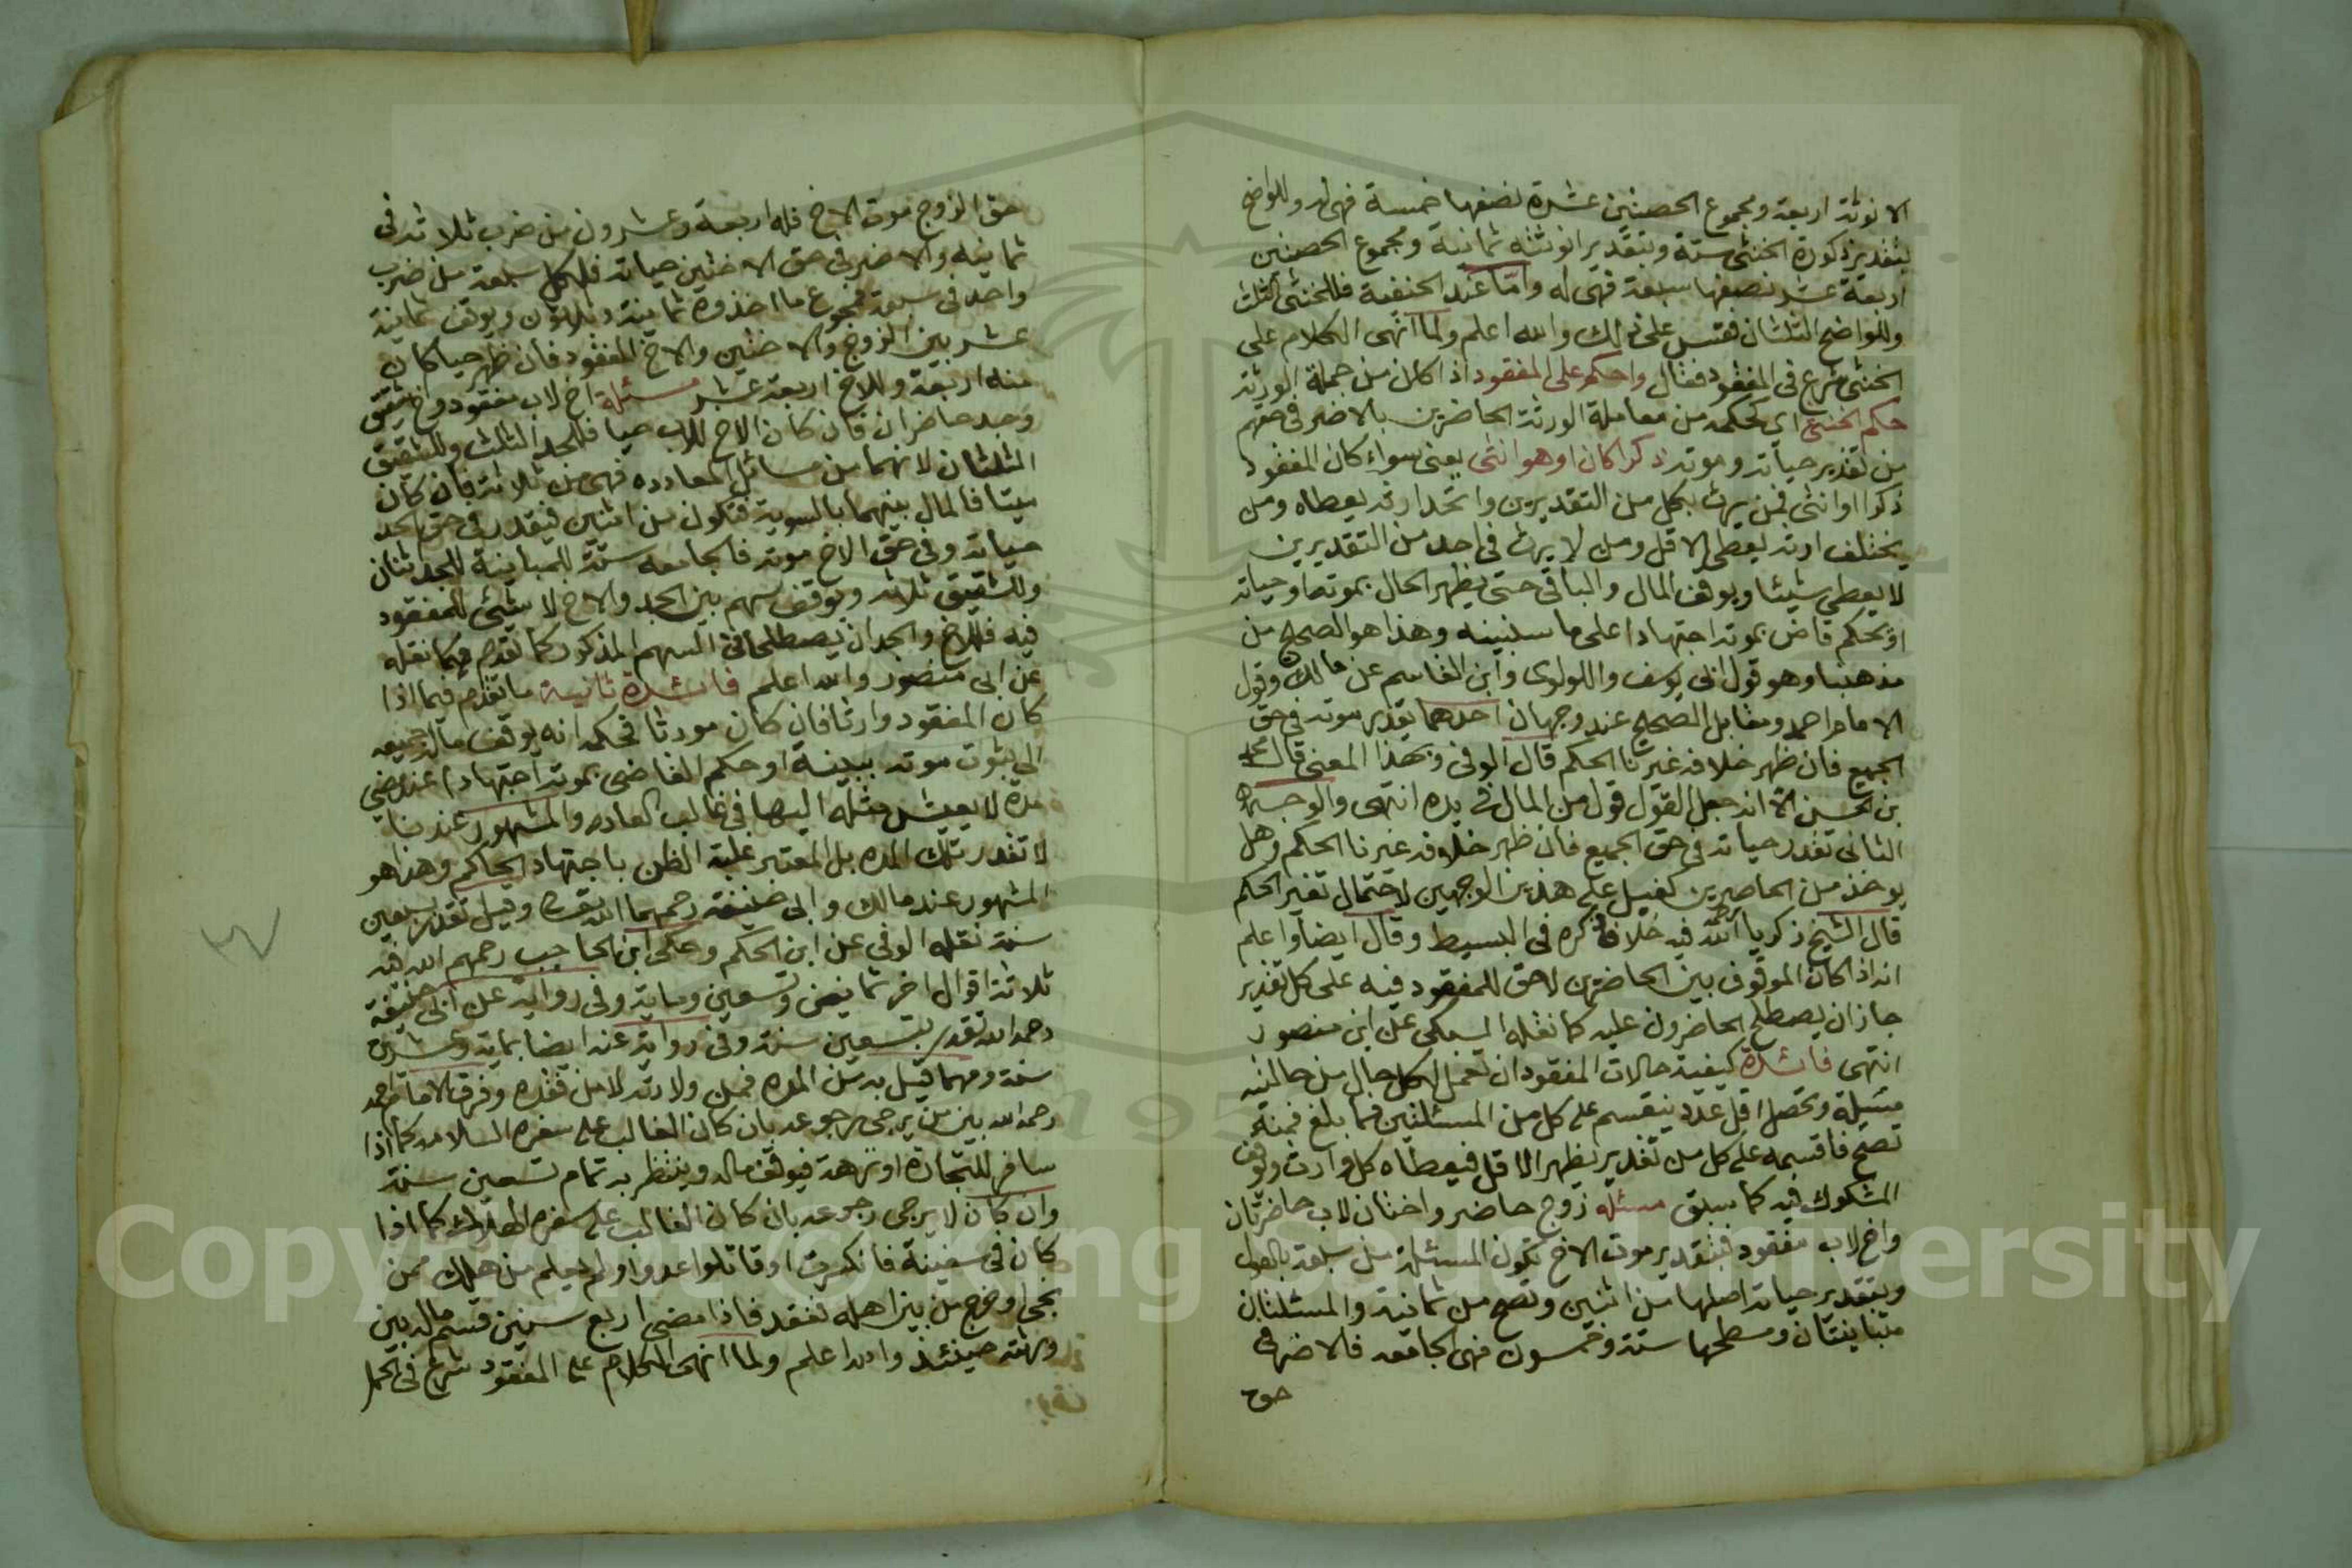 الانوثة اربعة ومجموع الحصتين عشرة نصفها خمسة فهى له وللواضح
بتقدير ذكورة الخنثى ستة وبتقدير انوثته ثمانية ومجموع الحصتين
اربعة عشر نصفها سبعة فهى له واما عند الحنفية فللخنثى الثلث
وللواضح الثلثان فقس على ذلك والله اعلم ولما انهى الكلام على
الخنثى شرع فى المفقود فقال واحكم على المفقود اذا كان من جملة الورثة
حكم الخنثى اى كحكمه من معاملة الورثة الحاضرين بالاضر فى حقهم
من تقدير حياته وموته ذكرا كان او هو انثى يعنى سواء كان المفقود
ذكرا او انثى فمن يرث بكل من التقديرين واتحد ارثه يعطاه ومن
يختلف ارثه يعطى الاقل ومن لا يرث فى احد من التقديرين
لا يعطى شيئا ويوقف المال والباقى حتى يظهر الحال بموته او حياته
او يحكم قاض بموته اجتهادا على ما سنبينه وهذا هو الصحيح من
مذهبنا وهو قول ابى يوسف واللولوى وابن القاسم عن مالك وقول
الامام احمد ومقابل الصحيح عند وجهان احدهما يقدر موته فى حق
الجميع فان ظهر خلافه غيرنا الحكم قال الونى وبهذا المعنى قال محمد
بن الحسن الا انه جعل القول قول من المال فى يده انتهى والوجه
الثانى تقدر حياته فى حق الجميع فان ظهر خلافه غيرنا الحكم وهل
يوخذ من الحاضرين كفيل على هذين الوجهين لاحتمال تغير الحكم
قال الشيخ زكريا رحمه الله فيه خلاف ذكره فى البسيط وقال ايضا واعلم
انه اذا كان الموقوف بين الحاضرين لاحق للمفقود فيه على كل تقدير
جاز ان يصطلح الحاضرون عليه كما نقله السبكى عن ابى منصور
انتهى فائدة كيفية حالات المفقود ان تعمل لكل حال من حالتيه
مسئلة وتحصل اقل عدد ينقسم على كل من المسئلتين فما بلغ فمنه
تصح فاقسمه على كل من تقدير يظهر الاقل فيعطاه كل وارث ويوقف
المشكوك فيه كما سبق مسئلة زوج حاضر واختان لاب حاضرتان
واخ لاب مفقود فبتقدير موت الاخ تكون المسئلة من سبعة بالعول
وبتقدير حياته اصلها من اثنين وتصح من ثمانية والمسئلتان
متباينتان ومسطحها ستة وخمسون فهى الجامعة فالاضر فى
حق
حق الزوج موت الاخ فله اربعة وعشرون من ضرب ثلاثة فى
ثمانيه والاضر فى حق الاختين حياته فلكل سبعة من ضرب
واحد فى سبعة فمجموع ما اخذوه ثمانية وثلاثون ويوقف ثمانية
عشر بين الزوج والاختين والاخ المفقود فان ظهر حيا كان
منه اربعة وللاخ اربعة عشر مسئلة اخ لاب مفقود واخ شقيق
وجد حاضران فان كان الاخ للاب حيا فللجد الثلث وللشقيق
الثلثان لانهما من مسائل المعادده فهى من ثلاثة فان كان
ميتا فالمال بينهما بالسوية فتكون من اثنين فيقدر فى حق الجد
حياته وفى حق الاخ موته فالجامعه ستة للمباينة للجد اثنان
وللشقيق ثلاثه ويوقف سهم بين الجد والاخ لا شئ للمفقود
فيه فللاخ والجد ان يصطلحا فى السهم المذكور كما تقدم فيما نقله
عن ابى منصور والله اعلم فائدة ثانية ما تقدم فيما اذا
كان المفقود وارثا فان كان مورثا فحكمه انه يوقف ماله جميعه
الى ثبوت موته ببينة او حكم القاضى بموته اجتهادا عند مضى
مدة لا يعيش مثله اليها فى غالب العاده والمشهور عندنا
لا تقدر تلك المده بل المعتبر غلبة الظن باجتهاد الحاكم وهذا هو
المشهور عند مالك وابى حنيفة رحمهما الله تعالى وقيل تقدر بسبعين
سنة نقله الونى عن ابن الحكم وحكى ابن الحاجب رحمهم الله فيه
ثلاثة اقوال اخر ثمانين وتسعين ومايه وفى رواية عن ابى حنيفة
رحمه الله تقدر بتسعين سنة وفى رواية عنه ايضا بماية وعشرين
سنة ومهما قيل به من المده فمن ولادته لا من فقده وفرق الامام احمد
رحمه الله بين من يرجى رجوعه بان كان الغالب على سفره السلامه كما اذا
سافر للتجارة او نزهة فيوقف ماله وينتظر به تمام تسعين سنة
وان كان لا يرجى رجوعه بان كان الغالب على سفره الهلاك كما اذا
كان فى سفينة فانكسرت او قاتلوا عدوا ولم يعلم من هلك ممن
نجى او خرج من بين اهله ففقد فاذا مضى اربع سنين قسم ماله بين
ورثته حينئذ والله اعلم ولما انهى الكلام على المفقود شرع فى الحمل
Copyright © King Saud University